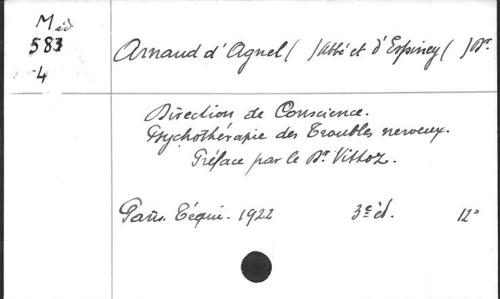 Med
583
4
Arnaud d'Agnel ( ) Abbé et d'Espiney ( ) Dr
Direction de Conscience.
Psychothérapie des Troubles nerveux.
Préface par le Dr Vittoz.
Paris. Téqui. 1922 3e éd. 12°